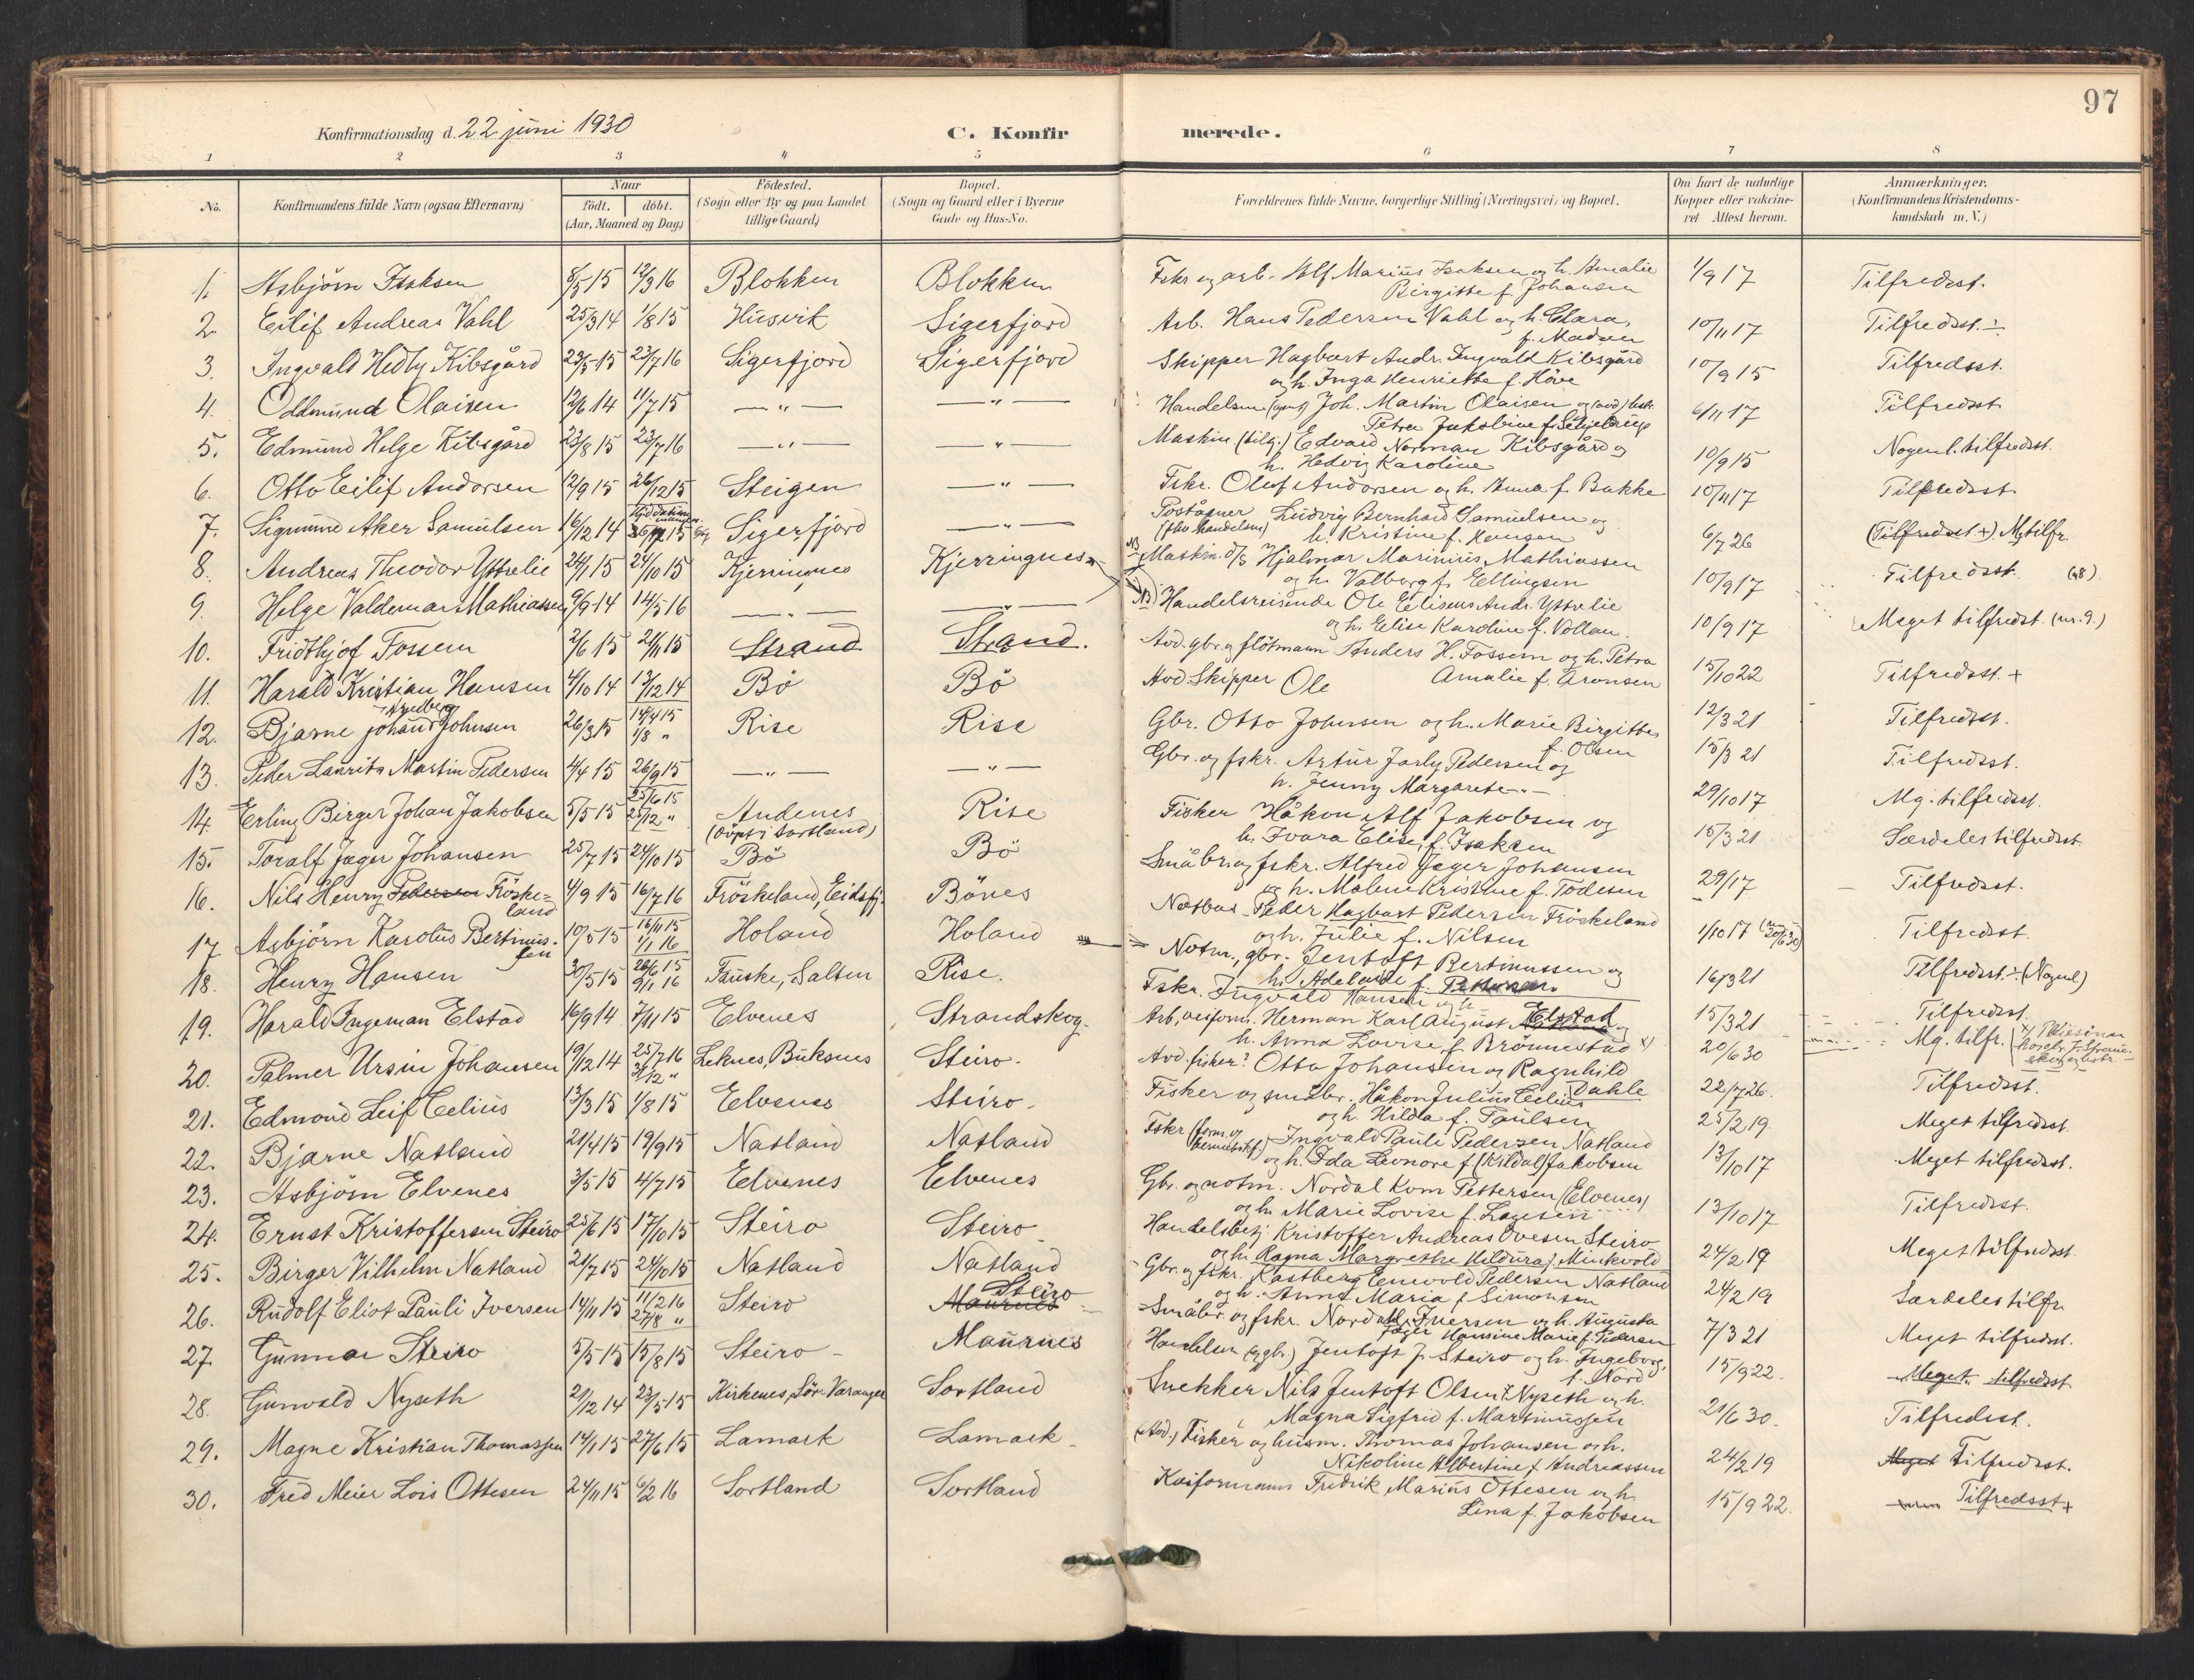 97
Konfirmationsdag d. 22 juni 1930
C. Konfirmerede.
1 2 3 4 5 6 7 8
No.
Konfirmandens fulde Navn (ogsaa Efternavn)
Naar
født. døbt.
(Aar, Maaned og Dag)
Födested.
(Sogn eller By og paa Landet
tillige Gaard)
Bopæl.
(Sogn og Gaard eller i Byerne
Gade og Hus-No.
Forældrenes fulde Navne, borgerlige Stilling (Næringsvei) og Bopæl.
Om havt de naturlige
Kopper eller vaksine-
ret Attest herom.
Anmærkninger.
(Konfirmandens Kristendoms-
kundskab m. V.)
1. Asbjørn Isaksen 8/5 15 12/3 16 Blokken Blokken Fskr og arb. Alf Marius Isaksen og h. Amalie 1/9 17 Tilfredsst.
Birgitte f. Johansen
2. Eilif Andreas Vahl 25/3 14 1/8 15 Husvik Sigerfjord Arb. Hans Pedersen Vahl og h. Clara, 10/11 17 Tilfredsst. -
f. Madsen
3. Ingvald Hedly Kibsgård 23/5 15 23/7 16 Sigerfjord Sigerfjord Skipper Hagbart Andr. Ingvald Kibsgård 10/9 15 Tilfredsst.
og h. Inga Henriette f. Höve
4. Oddmund Olaisen 12/6 14 11/7 15 — " — — " — Handelsm. Joh. Martin Olaisen og (avd) hustr. 6/11 17 Tilfredsst.
Petra Jakobine f. Schjelderup
5. Edmund Helge Kibsgård 23/8 15 23/7 16 — " — — " — Maskin. (tilg.) Edvard Norman Kibsgård og 10/9 15 Nogenl. tilfredsst.
h. Hedvig Karoline
6. Otto Eilif Andorsen 12/9 15 26/12 15 Steigen — " — Fskr. Oluf Andorsen og h. Anna f. Bakke 10/11 17 Tilfredsst.
7. Sigmund Aker Samulsen 16/12 14 26/12 15 Sigerfjord — " — Poståpner Ludvig Bernhard Samuelsen og 6/7 26 (Tilfredsst +) Mg tilfr.
(fhv. handelsm) h. Kristine f. Hansen
8. Andreas Theodor Yttrelie 24/1 15 24/10 15 Kjerringnes Kjerringnes NB Maskin. d/s Hjalmar Marinius Mathiassen 10/9 17 Tilfredsst. (n8)
og h. Valborg f. Ellingsen
9. Helge Valdemar Mathiassen 9/9 14 14/5 16 — " — — " — NB) Handelsreisende Ole Eliseus Andr. Yttrelie 10/9 17 Meget tilfredst. (nr. 9.)
og h. Elise Karoline f. Vollan.
10. Fridthjof Fossem 2/6 15 21/11 15 Strand Strand. Avd. gbr. og fløtmann Anders H. Fossem og h. Petra 15/10 22 Tilfredsst. +
Amalie f. Aronsen
11. Harald Kristian Hansen 4/10 14 13/12 14 Bö Bö Avd. Skipper Ole
12. Bjarne Johan Nyelberg Johnsen 26/3 15 14/4 15 Rise Rise Gbr. Otto Johnsen og h. Marie Birgitte 12/3 21 Tilfredsst.
1/8 " f. Olsen
13. Peder Laurits Martin Pedersen 4/4 15 26/9 15 — " — — " — Gbr. og fskr. Artur Jarly Pedersen og 15/3 21 Tilfredsst.
h. Jenny Margarete — " —
14. Erling Birger Johan Jakobsen 5/5 15 25/6 15 Andenes Rise Fisker Håkon Alf Jakobsen og 29/10 17 Mg. tilfredsst.
25/12 " (döpt i Sortland) h. Ivara Elise, f. Isaksen
15. Toralf Jæger Johansen 25/7 15 24/10 15 Bö Bö Småbr. og fskr. Alfred Jæger Johansen 15/3 21 Særdeles tilfredsst.
og h. Malene Kristine f. Todesen
16. Nils Henry Pedersen Fröskeland 4/9 15 16/7 16 Fröskeland, Eidsfj. Bönes Notbas Peder Hagbart Pedersen Fröskeland 29/ 17 Tilfredsst.
og h. Julie f. Nilsen
17. Asbjörn Karolus Bertinussen 10/5 15 16/11 15 Holand Holand Notm., gbr. Jentoft Bertinussen og 1/10 17 Tilfredsst.
1/1 16 h. Adelaide f. Pettersen
18. Henry Hansen 30/5 15 26/6 15 Fauske, Salten Rise. Fskr. Ingvald Hansen og h 16/3 21 Tilfredsst. - (Nogenl)
2/1 16
19. Harald Ingeman Elstad 16/9 14 7/11 15 Elvenes Strandskog. Arb, veiform. Herman Karl August Elstad og 15/3 21 Tilfredsst.
h. Anna Lovise f. Brönnestad x)
20. Palmer Ursin Johansen 19/12 14 25/7 16 Leknes, Buksnes Steiro. Avd. fisker? Otto Johansen og Ragnhild 20/6 30 Mg. tilfr. x) Pleiesön av
31/12 " Dahle
21. Edmond Leif Celius 13/3 15 1/8 15 Elvenes Steiro. Fisker og småbr. Håkon Julius Celius 22/7 26. Tilfredsst.
og h. Hilda f. Paulsen
22. Bjarne Natland 21/4 15 19/9 15 Natland Natland Fskr (form. og herredsstyr) Ingvald Pauli Pedersen Natland 25/2 19 Meget tilfredsst.
og h. Ida Leonore f (Kildal) Jakobsen
23. Asbjörn Elvenes 3/5 15 4/7 15 Elvenes Elvenes Gbr. og notm. Nordal Kom Pettersen (Elvenes) 13/10 17 Meget tilfredsst.
og h. Marie Lovise f. Larsen
24. Ernst Kristoffersen Steiro 25/6 15 17/10 15 Steiro Steiro Handelsbetj. Kristoffer Andreas Ovesen Steiro 13/10 17 Tilfredsst.
og h. Ragna Margrethe Hildura f. Minkvold
25. Birger Vilhelm Natland 21/7 15 24/10 15 Natland Natland Gbr. og fskr. Rastberg Eenvold Pedersen Natland 24/2 19 Meget tilfredsst.
og h. Anna Maria f. Simonsen
26. Rudolf Eliot Pauli Iversen 14/11 15 11/2 16 Steiro Maurnes Steiro Småbr. og fskr. Nordahl Iversen og h. Augusta 24/2 19 Særdeles tilfr.
27/8 " Jæger Hansine Marie f. Pedersen
27. Gunnar Steiro 5/5 15 15/8 15 Steiro Maurnes Handelsm. (og gbr.) Jentoft J. Steiro og h. Ingeborg, 7/3 21 Meget tilfredsst.
f. Nord
28. Gunvald Nyseth 21/12 14 23/5 15 Kirkenes, Sör-Varanger Sortland Snekker Nils Jentoft Olsen Nyseth og h. 15/9 22. Meget tilfredsst.
Magna Sigfrid f. Martinussen
29. Magne Kristian Thomassen 14/1 15 27/6 15 Lamark Lamark (Avd.) Fisker og husm. Thomas Johansen og h. 21/6 30. Tilfredsst.
Nikoline Albertine f. Andreassen 24/2 19 Meget Tilfredsst.
30. Fred Meier Lois Ottesen 24/11 15 6/2 16 Sortland Sortland Kaiformann Fredrik Marius Ottesen og h. 15/9 22. Tilfredsst +
Lina f. Jakobsen